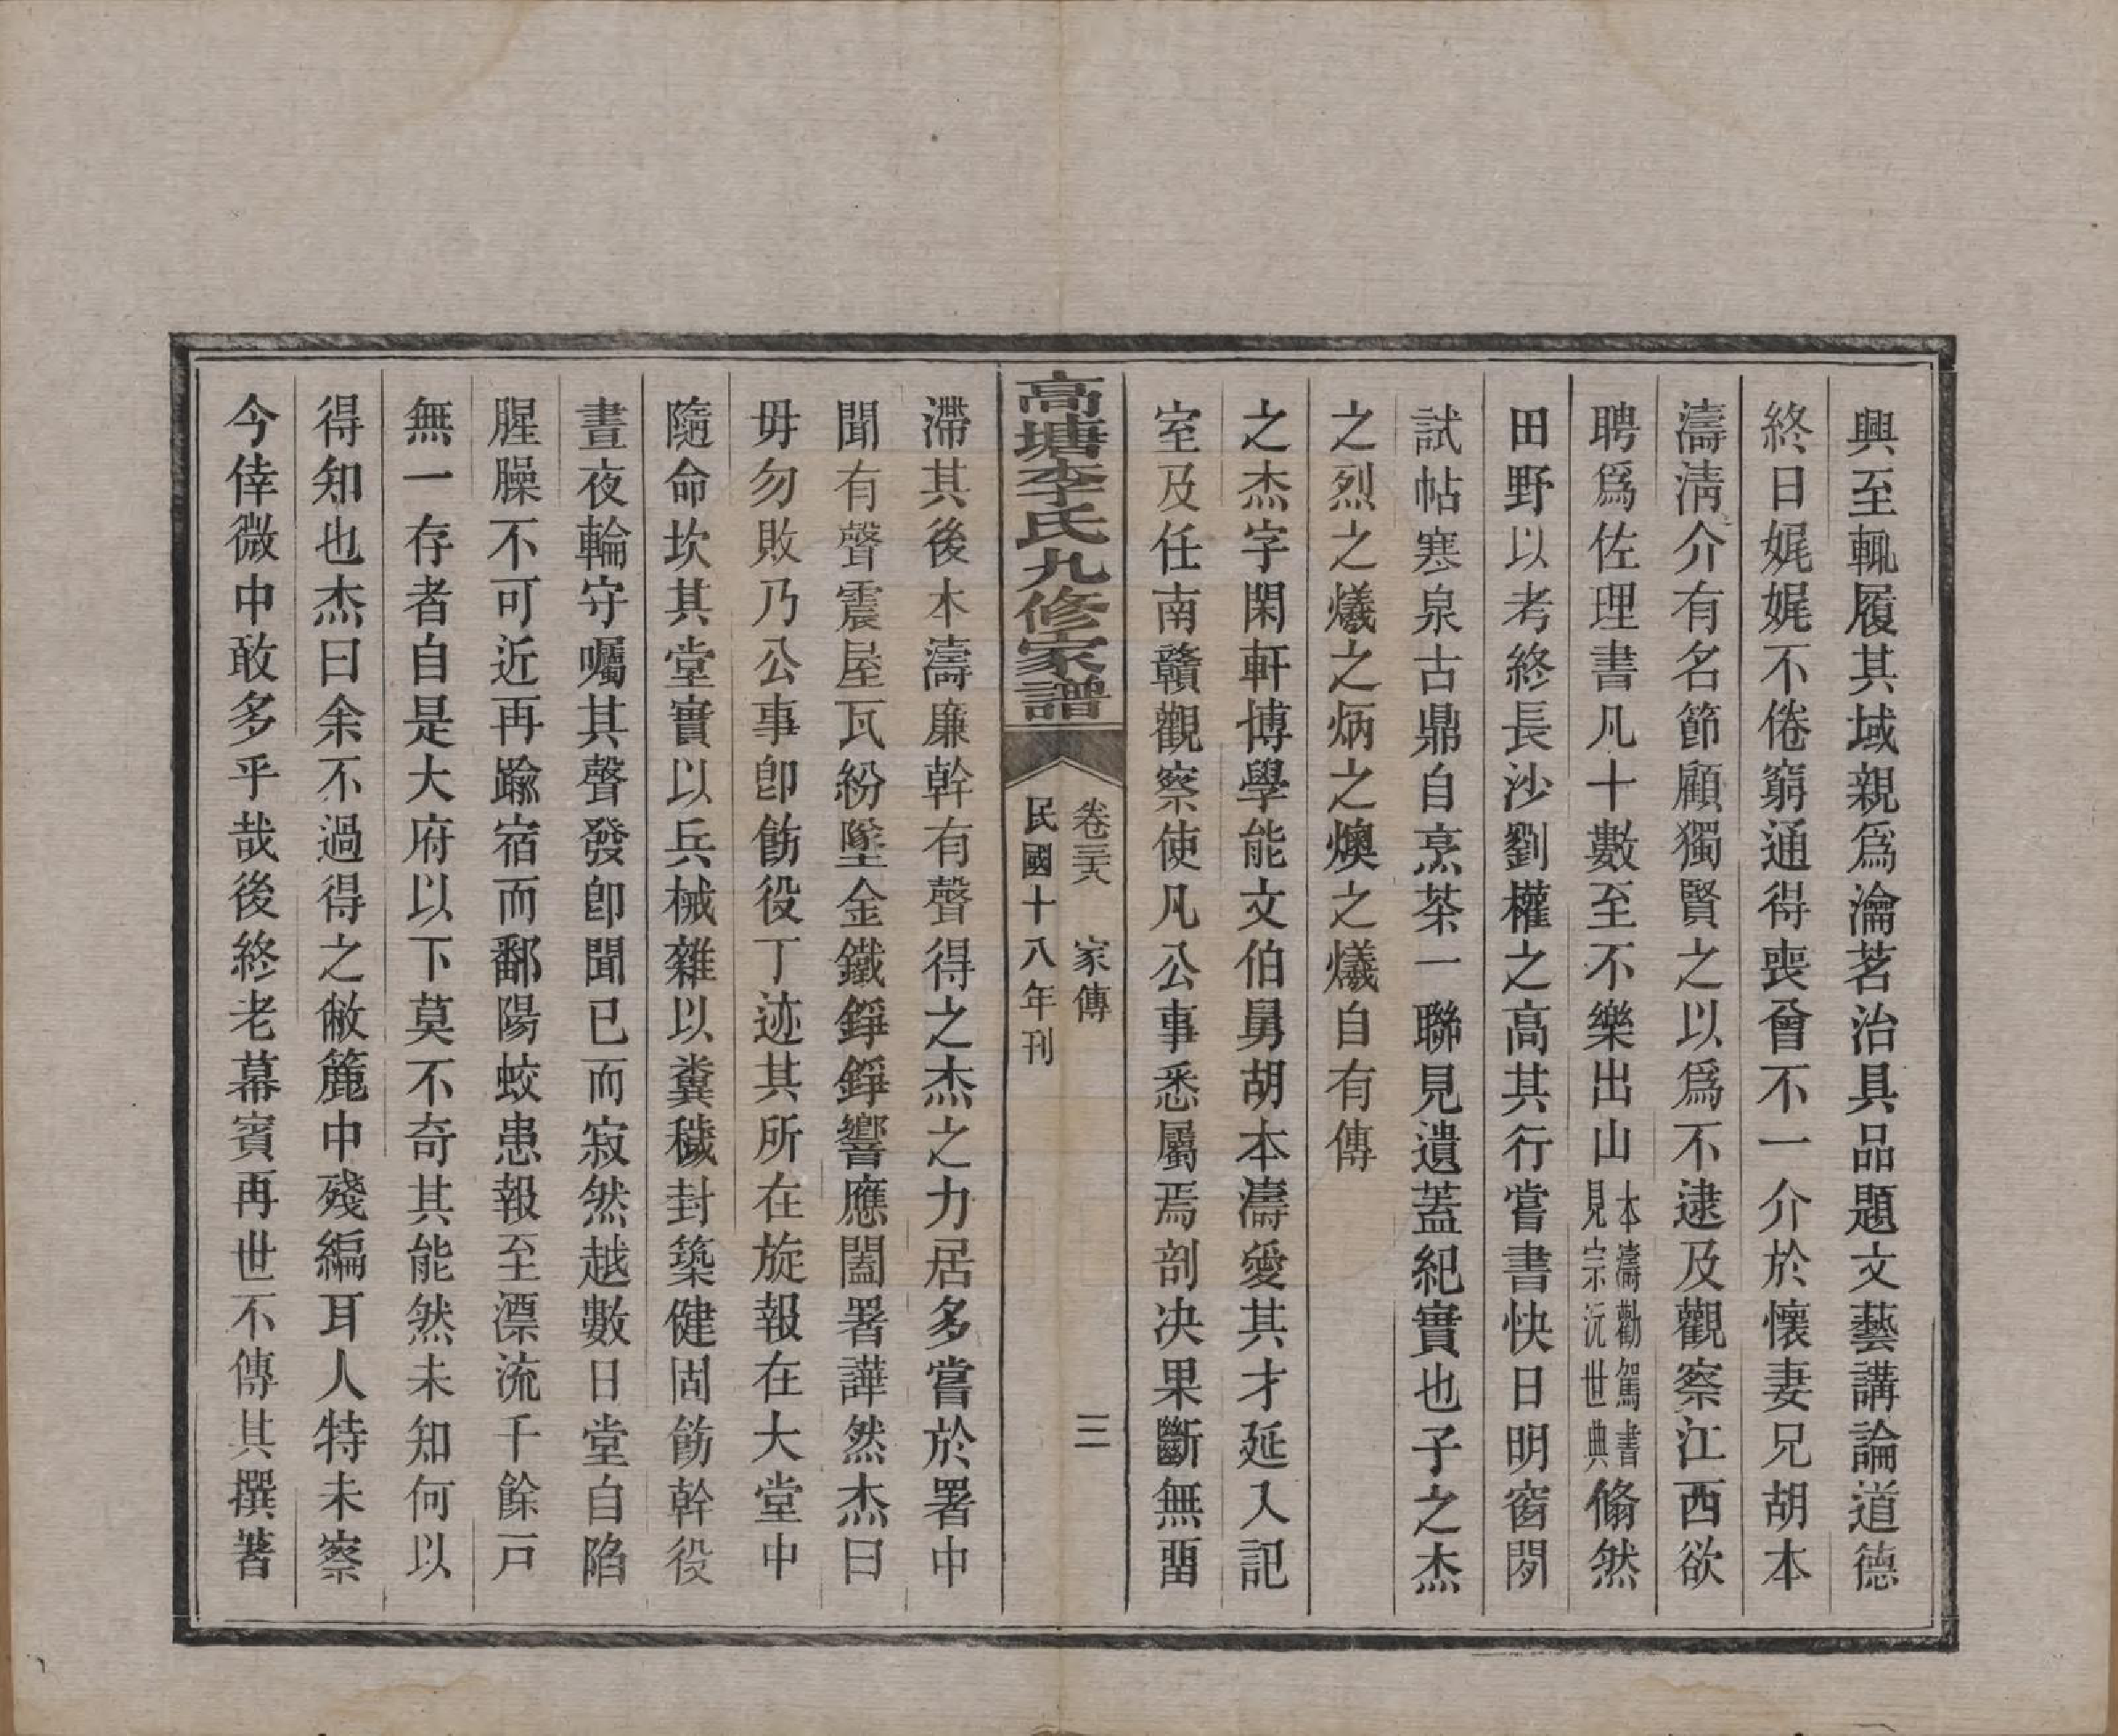 興至輒履其域親爲瀹茗治具品題文藝講論道德
終日娓娓不倦窮通得喪曾不一介於懷妻兄胡本
濤淸介有名節顧獨賢之以爲不逮及觀察江西欲
聘爲佐理書凡十數至不樂出山本濤勸駕書見宗沅世典翛然
田野以考終長沙劉權之高其行嘗書快日明窗閒
試帖寒泉古鼎自烹茶一聯見遺蓋紀實也子之杰
之烈之爔之炳之燠之爔自有傳
之杰字閑軒博學能文伯舅胡本濤愛其才延入記
室及任南贛觀察使凡公事悉屬焉剖決果斷無畱
高塘李氏九修家譜
卷三六 家傳
三
民國十八年刊
滯其後本濤廉幹有聲得之杰之力居多嘗於署中
聞有聲震屋瓦紛墜金鐵錚錚響應闔署譁然杰曰
毋勿敗乃公事卽飭役丁迹其所在旋報在大堂中
隨命坎其堂實以兵械雜以糞穢封築健固飭幹役
晝夜輪守囑其聲發卽聞已而寂然越數日堂自陷
腥臊不可近再踰宿而鄱陽蛟患報至漂流千餘戸
無一存者自是大府以下莫不奇其能然未知何以
得知也杰曰余不過得之敝簏中殘編耳人特未察
今倖微中敢多乎哉後終老幕賓再世不傳其撰著